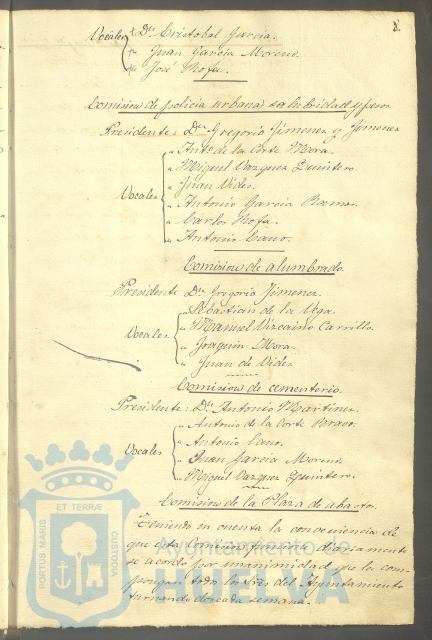 8.
Vocales " Dn. Cristobal Garcia.
" Juan Garcia Moreno.
" José Mofa.
Comision de policia urbana salubridad y
Presidente: Dn. Gregorio Jimenez y Jimenez
" Anto. de la Corte Mora.
" Miguel Vazquez Quintero.
" Juan Vides.
Vocales " Antonio Garcia Ramos
" Carlos Mofa.
" Antonio Cano.
Comision de alumbrado.
Presidente Dn. Gregorio Jimenez.
" Sebastian de la Vega.
" Manuel Vizcaino Carrillo.
Vocales " Joaquin Mora.
" Juan de Vides.
Comision de cementerio.
Presidente: Dn. Antonio Martinez.
" Antonio de la Corte Bravo.
Vocales " Antonio Cano.
" Juan Garcia Moreno.
" Miguel Vazquez Quintero.
Comision de la Plaza de abastos.
Teniendo en cuenta la conveniencia de
que esta Comision funcione diariamente
se acordó por unanimidad que la com-
pongan todos los Sres. del Ayuntamiento
turnando dos cada semana.
PORTUS MARIS ET TERRÆ CUSTODIA
Ayuntamiento de
HUELVA